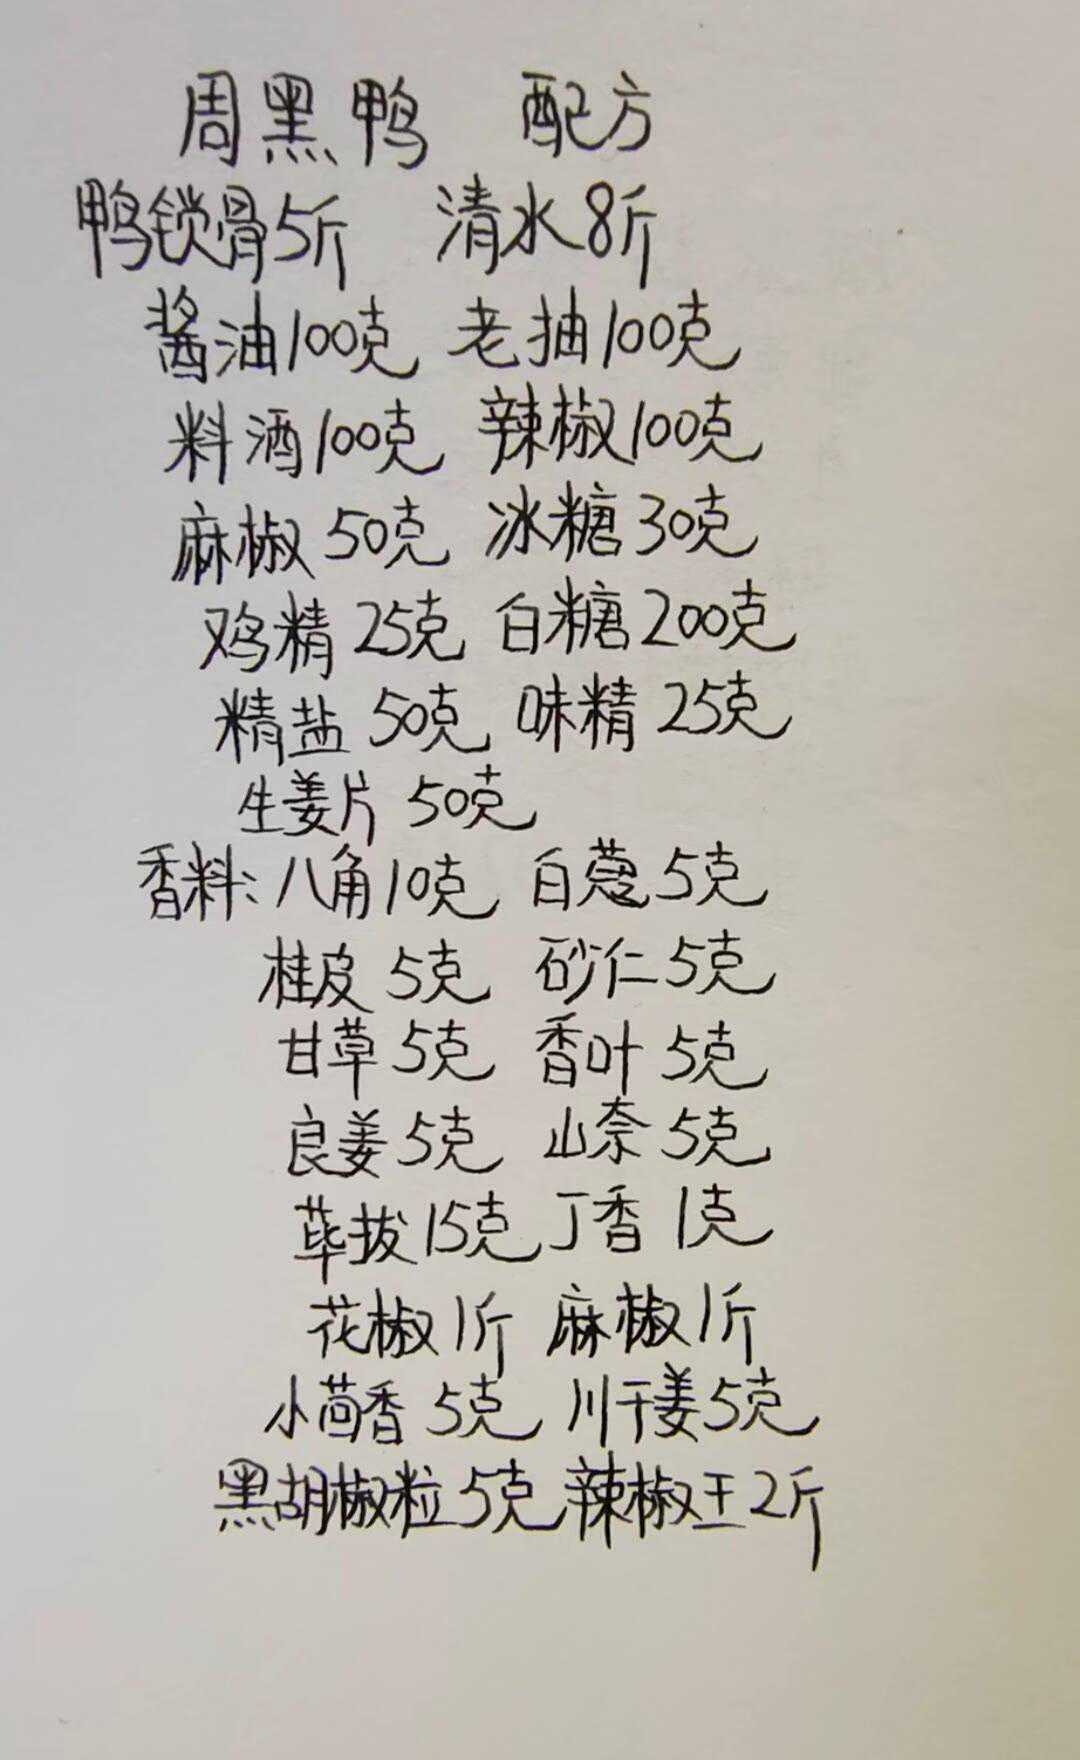 周黑鸭 配方
鸭锁骨5斤 清水8斤
酱油100克 老抽100克
料酒100克 辣椒100克
麻椒50克 冰糖30克
鸡精25克 白糖200克
精盐50克 味精25克
生姜片50克
香料:八角10克 白蔻5克
桂皮5克 砂仁5克
甘草5克 香叶5克
良姜5克 山奈5克
荜拔15克 丁香1克
花椒1斤 麻椒1斤
小茴香5克 川干姜5克
黑胡椒粒5克 辣椒王2斤